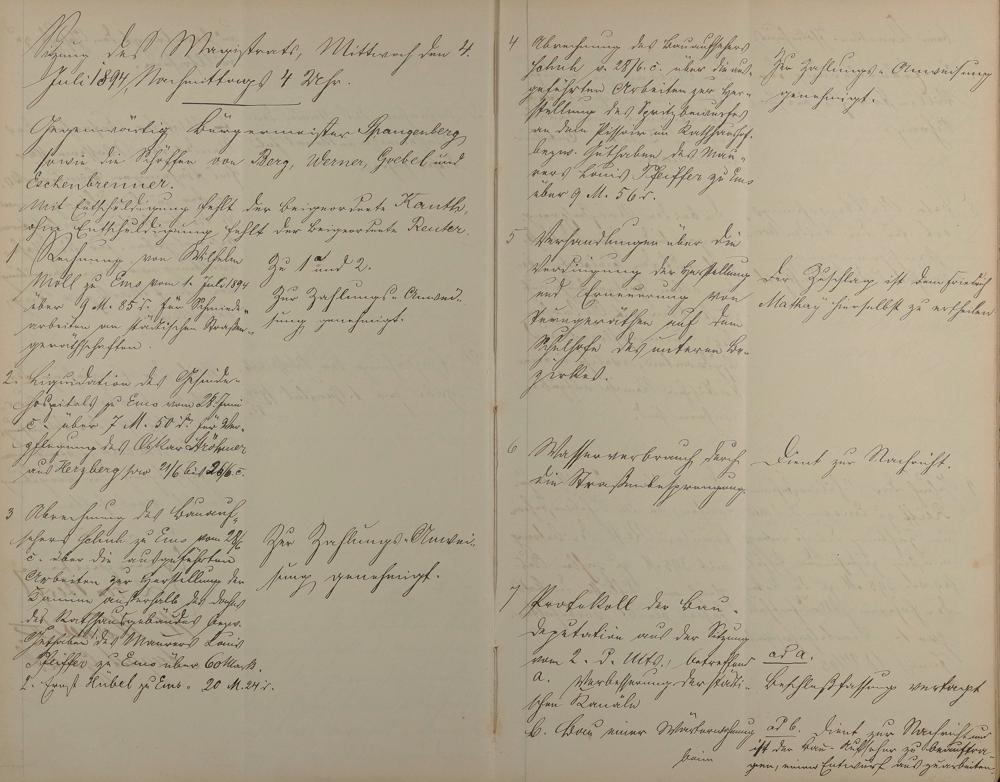 Sitzung des Magistrats, Mittwoch den 4.
Juli 1894, Nachmittags 4 Uhr.
Gegenwärtig Bürgermeister Spangenberg
sowie die Schöffen von Berg, Werner, Goebel und
Eschenbrenner.
Mit Entschuldigung fehlt der Beigeordnete Kauth,
ohne Entschuldigung fehlt der Beigeordnete Reuter.
1 Rechnung von Wilhelm
Moll zu Ems vom 1. Juli 1894
über 9 M. 85 d. für Schmiede-
arbeiten an städtischen Straßen-
geräthschaften.
Zu 1 und 2.
Zur Zahlungs-Anwei-
sung genehmigt.
2. Liquidation des Gesinde-
hospitals zu Ems vom 28 Juni
c. über 7 M. 50 d. für Ver-
pflegung des Oskar
aus Herzberg pro 21/6 bis 26/6 c.
3 Abrechnung des Bauauf-
sehers Schenk zu Ems vom 28/6
c. über die ausgeführten
Arbeiten zur Herstellung der
Kamine außerhalb des Daches
des Rathhausgebäudes bezw.
Guthaben des Maurers Louis
Pfeiffer zu Ems über 60 Mark.
2. Ernst Hübel zu Ems " 20 M. 24 d.
Zur Zahlungs-Anwei-
sung genehmigt.
4 Abrechnung des Bauaufsehers
Schenk v. 28/6. c. über die aus-
geführten Arbeiten zur Her-
stellung des Spritzbewurfes
an dem Pissoir im Rathhaushof
bezw. Guthaben des Mau-
rers Louis Pfeiffer zu Ems
über 9 M. 56 d.
Zur Zahlungs-Anweisung
genehmigt.
5 Verhandlungen über die
Verdingung der Herstellung
und Erneuerung von
Turngeräthen auf dem
Schulhofe des unteren Be-
zirkes.
Der Zuschlag ist dem Friedrich
Mathey hierselbst zu ertheilen
6 Wasserverbrauch durch
die Straßenbesprengung.
Dient zur Nachricht.
7 Protokoll der Bau-
deputation aus der Sitzung
vom 2. d. Mts., betreffend
a. Verbesserung der städti-
schen Kanäle
ad a.
Beschlußfassung vertagt
b. Bau einer Wärterwohnung
beim
ad b. Dient zur Nachricht und
ist der Bau-Aufseher zu beauftra-
gen, einen Entwurf auszuarbeiten